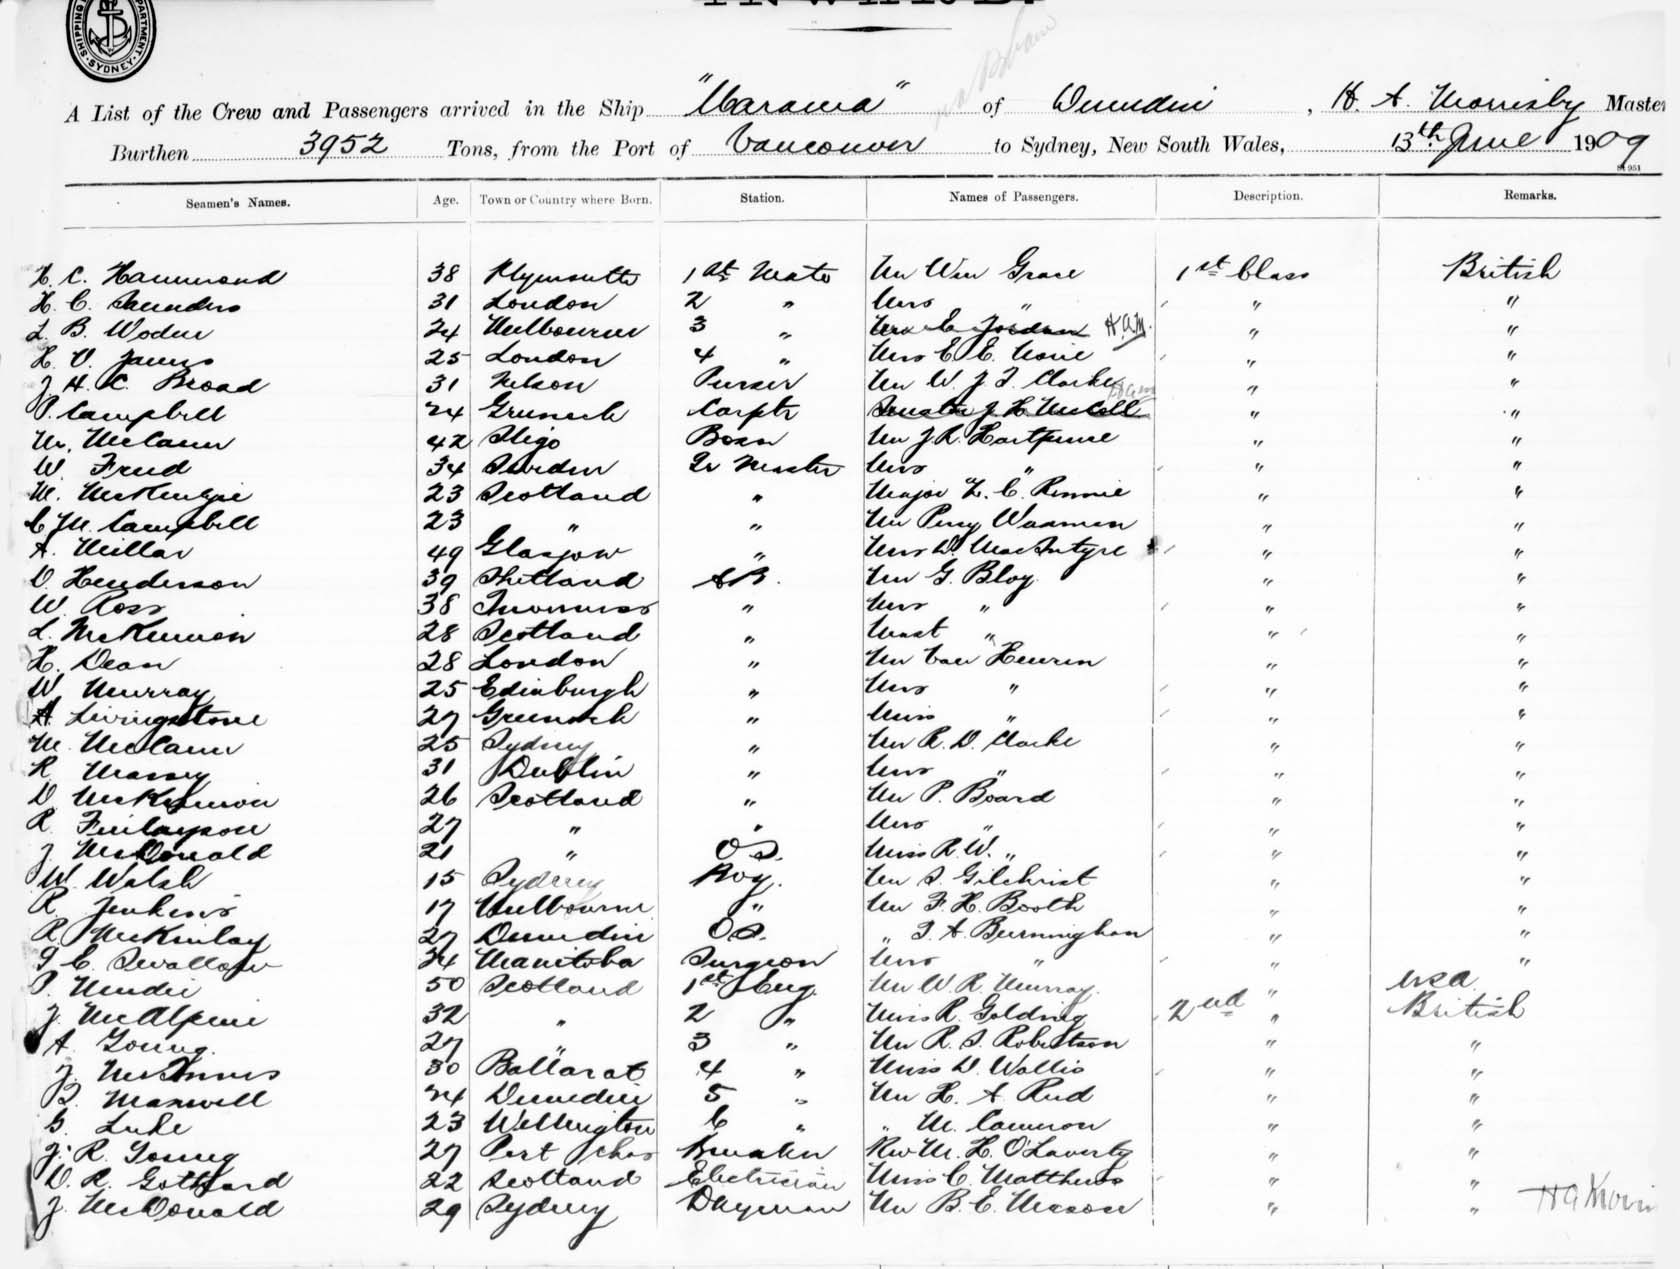 SHIPPING DEPARTMENT SYDNEY
INWARD.
A List of the Crew and Passengers arrived in the Ship "Marama" of Dunedin, H. A. Morrisby Master
Burthen 3952 Tons, from the Port of Vancouver to Sydney, New South Wales, 13th June 1909
Seamen's Names. Age. Town or Country where Born. Station. Names of Passengers. Description. Remarks.
H. C. Hammond 38 Plymouth 1st Mate Mr Wm Grose 1st Class British
H. C. Saunders 31 London 2 " Mrs " " "
L. B. Woder 24 Melbourne 3 " Mr E Jordan H.A.M. " "
H. V. James 25 London 4 " Mrs E. E. " "
J H. C. Broad 31 Nelson Purser Mr W. J. T. Clarke " "
P. Campbell 24 Greenock Carptr Senator J H McColl " "
M. McCann 42 Sligo Bosn Mr J R. Hartpense " "
W. Freud 34 Sweden Qr Master Mrs " " "
M. McKenzie 23 Scotland " Major L. C. Rennie " "
C. M. Campbell 23 " " Mr Percy Waxman " "
A. Millar 49 Glasgow " Mrs D. MacIntyre " "
D Henderson 39 Shetland AB. Mr G. Bloy " "
W. Ross 38 Inverness " Mrs " " "
L. McKinnon 28 Scotland " Mast " " "
H. Dean 28 London " Mr Van " "
W. Murray 25 Edinburgh " Mrs " " "
A Livingstone 27 Greenock " Miss " " "
M. McCann 25 Sydney " Mr R. D. Clarke " "
R Massey 31 Dublin " Mrs " " "
D. McKinnon 26 Scotland " Mr P. Board " "
R. Finlayson 27 " " Mrs " " "
J McDonald 21 " OS. Miss R. W. " " "
W. Walsh 15 Sydney Boy. Mr S. Gilchrist " "
R. Jenkins 17 Melbourne " Mr F. H. Booth " "
R. McKinlay 27 Dunedin OS. " T. A. Burmingham " "
G C. Swallow 34 Manitoba Surgeon Mrs " " "
P. Mundie 50 Scotland 1st Eng. Mr W. R. Murray. " USA
J. McAlpine 32 " 2 " Miss R. Golding 2nd " British
A. Young. 27 " 3 " Mr R. S. Robertson " "
J. McInnes 30 Ballarat 4 " Miss D. Wallis " "
R. Maxwell 24 Dunedin 5 " Mr H. A. Reid " "
G. Luke 23 Wellington 6 " " M. Cameron " "
J. R. Young 27 Port Chas Rev M. H. O'Laverty " "
D. R. Gothard 22 Scotland Electrician Miss C. Matthews " "
J. McDonald 29 Sydney Dayman Mr B. E. Messon " "